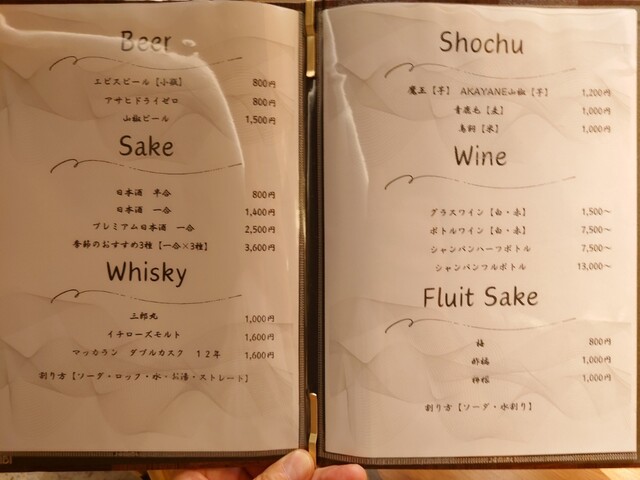 Beer
エビスビール【小瓶】 800円
アサヒドライゼロ 800円
山椒ビール 1,500円
Sake
日本酒 半合 800円
日本酒 一合 1,400円
プレミアム日本酒 一合 2,500円
季節のおすすめ3種【一合×3種】 3,600円
Whisky
三郎丸 1,000円
イチローズモルト 1,600円
マッカラン ダブルカスク 12年 1,600円
割り方【ソーダ・ロック・水・お湯・ストレート】
Shochu
魔王【芋】 AKAYANE山椒【芋】 1,200円
青鹿毛【麦】 1,000円
鳥飼【米】 1,000円
Wine
グラスワイン【白・赤】 1,500~
ボトルワイン【白・赤】 7,500~
シャンパンハーフボトル 7,500~
シャンパンフルボトル 13,000~
Fluit Sake
梅 800円
1,000円
1,000円
割り方【ソーダ・水割り】